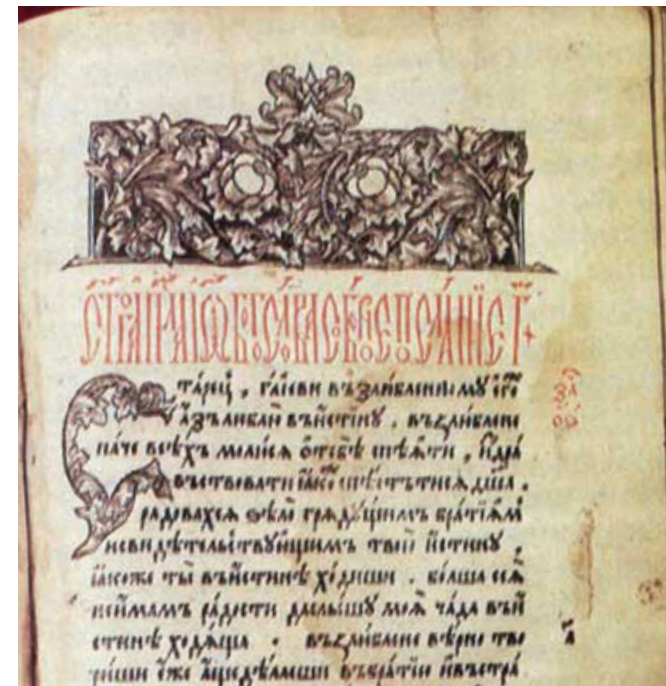 С
та́рець , га́їеви възлю́бленномꙋ є҆го́же
а҆́зъ люблю̀ въи́стинꙋ , възлю́блене
па́че всѣ́хъ молю́ся ѻ҆тебѣ̀ спѣ́яти , и҆здра
въствовати ꙗ҆́коже спѣ́етътися дш҃а .
ра́довахся ѕѣло̀ грядꙋ́щимъ бра́тїямъ
исвидѣ́тельствꙋ́ющимъ твое́й и҆́стинꙋ ,
ꙗ҆́коже ты̀ въи́стинѣ хо́диши . бо́лша сея̀
неи́мамъ ра́дости даслы́шꙋ моя̀ ча́да въи
стинѣ ходяща . възлю́блене вѣ́рно тво
риши є҆́же а҆́щедѣ́лаеши въбра́тїю и҆въстра